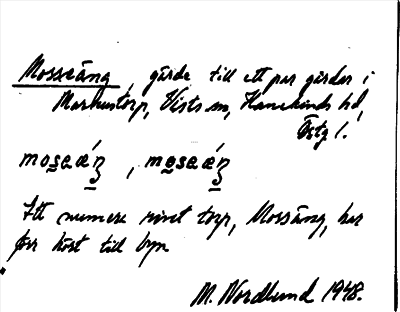 Mosseäng, gärde till ett par gårdar i
Markustorp, Vists sn, Hanekinds hd,
Östg l.
mosaǽŋ , mosaǽŋ
Ett numera rivet torp, Mossäng, har
förr hört till byn
M. Nordlund 1948.